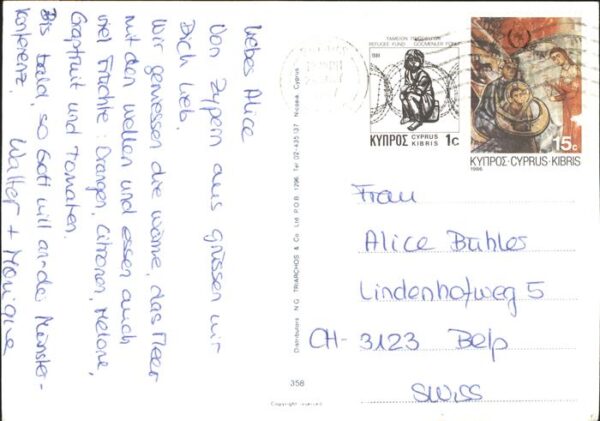 Liebes Alice
Von Zypern aus grüssen wir
Dich lieb.
Wir geniessen die wärme, das Meer
mit den wellen und essen auch
viel Früchte: Orangen, Citronen, Melone,
Grapfruit und Tomaten.
Bis bald, so Gott will an der Münster-
konferenz. Walter + Monique
Distributors N.G. TRIARCHOS & Co. Ltd. P.O.B. 1296 Tel. 02-435137 Nicosia, Cyprus
358
Copyright reserved
REFUGEE FUND GÖÇMENLER FONU
ΚΥΠΡΟΣ CYPRUS KIBRIS 1c
15c
ΚΥΠΡΟΣ·CYPRUS·KIBRIS
Frau
Alice Bühler
Lindenhofweg 5
CH-3123 Belp
SWISS